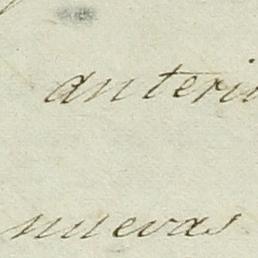 anteri
nuevas